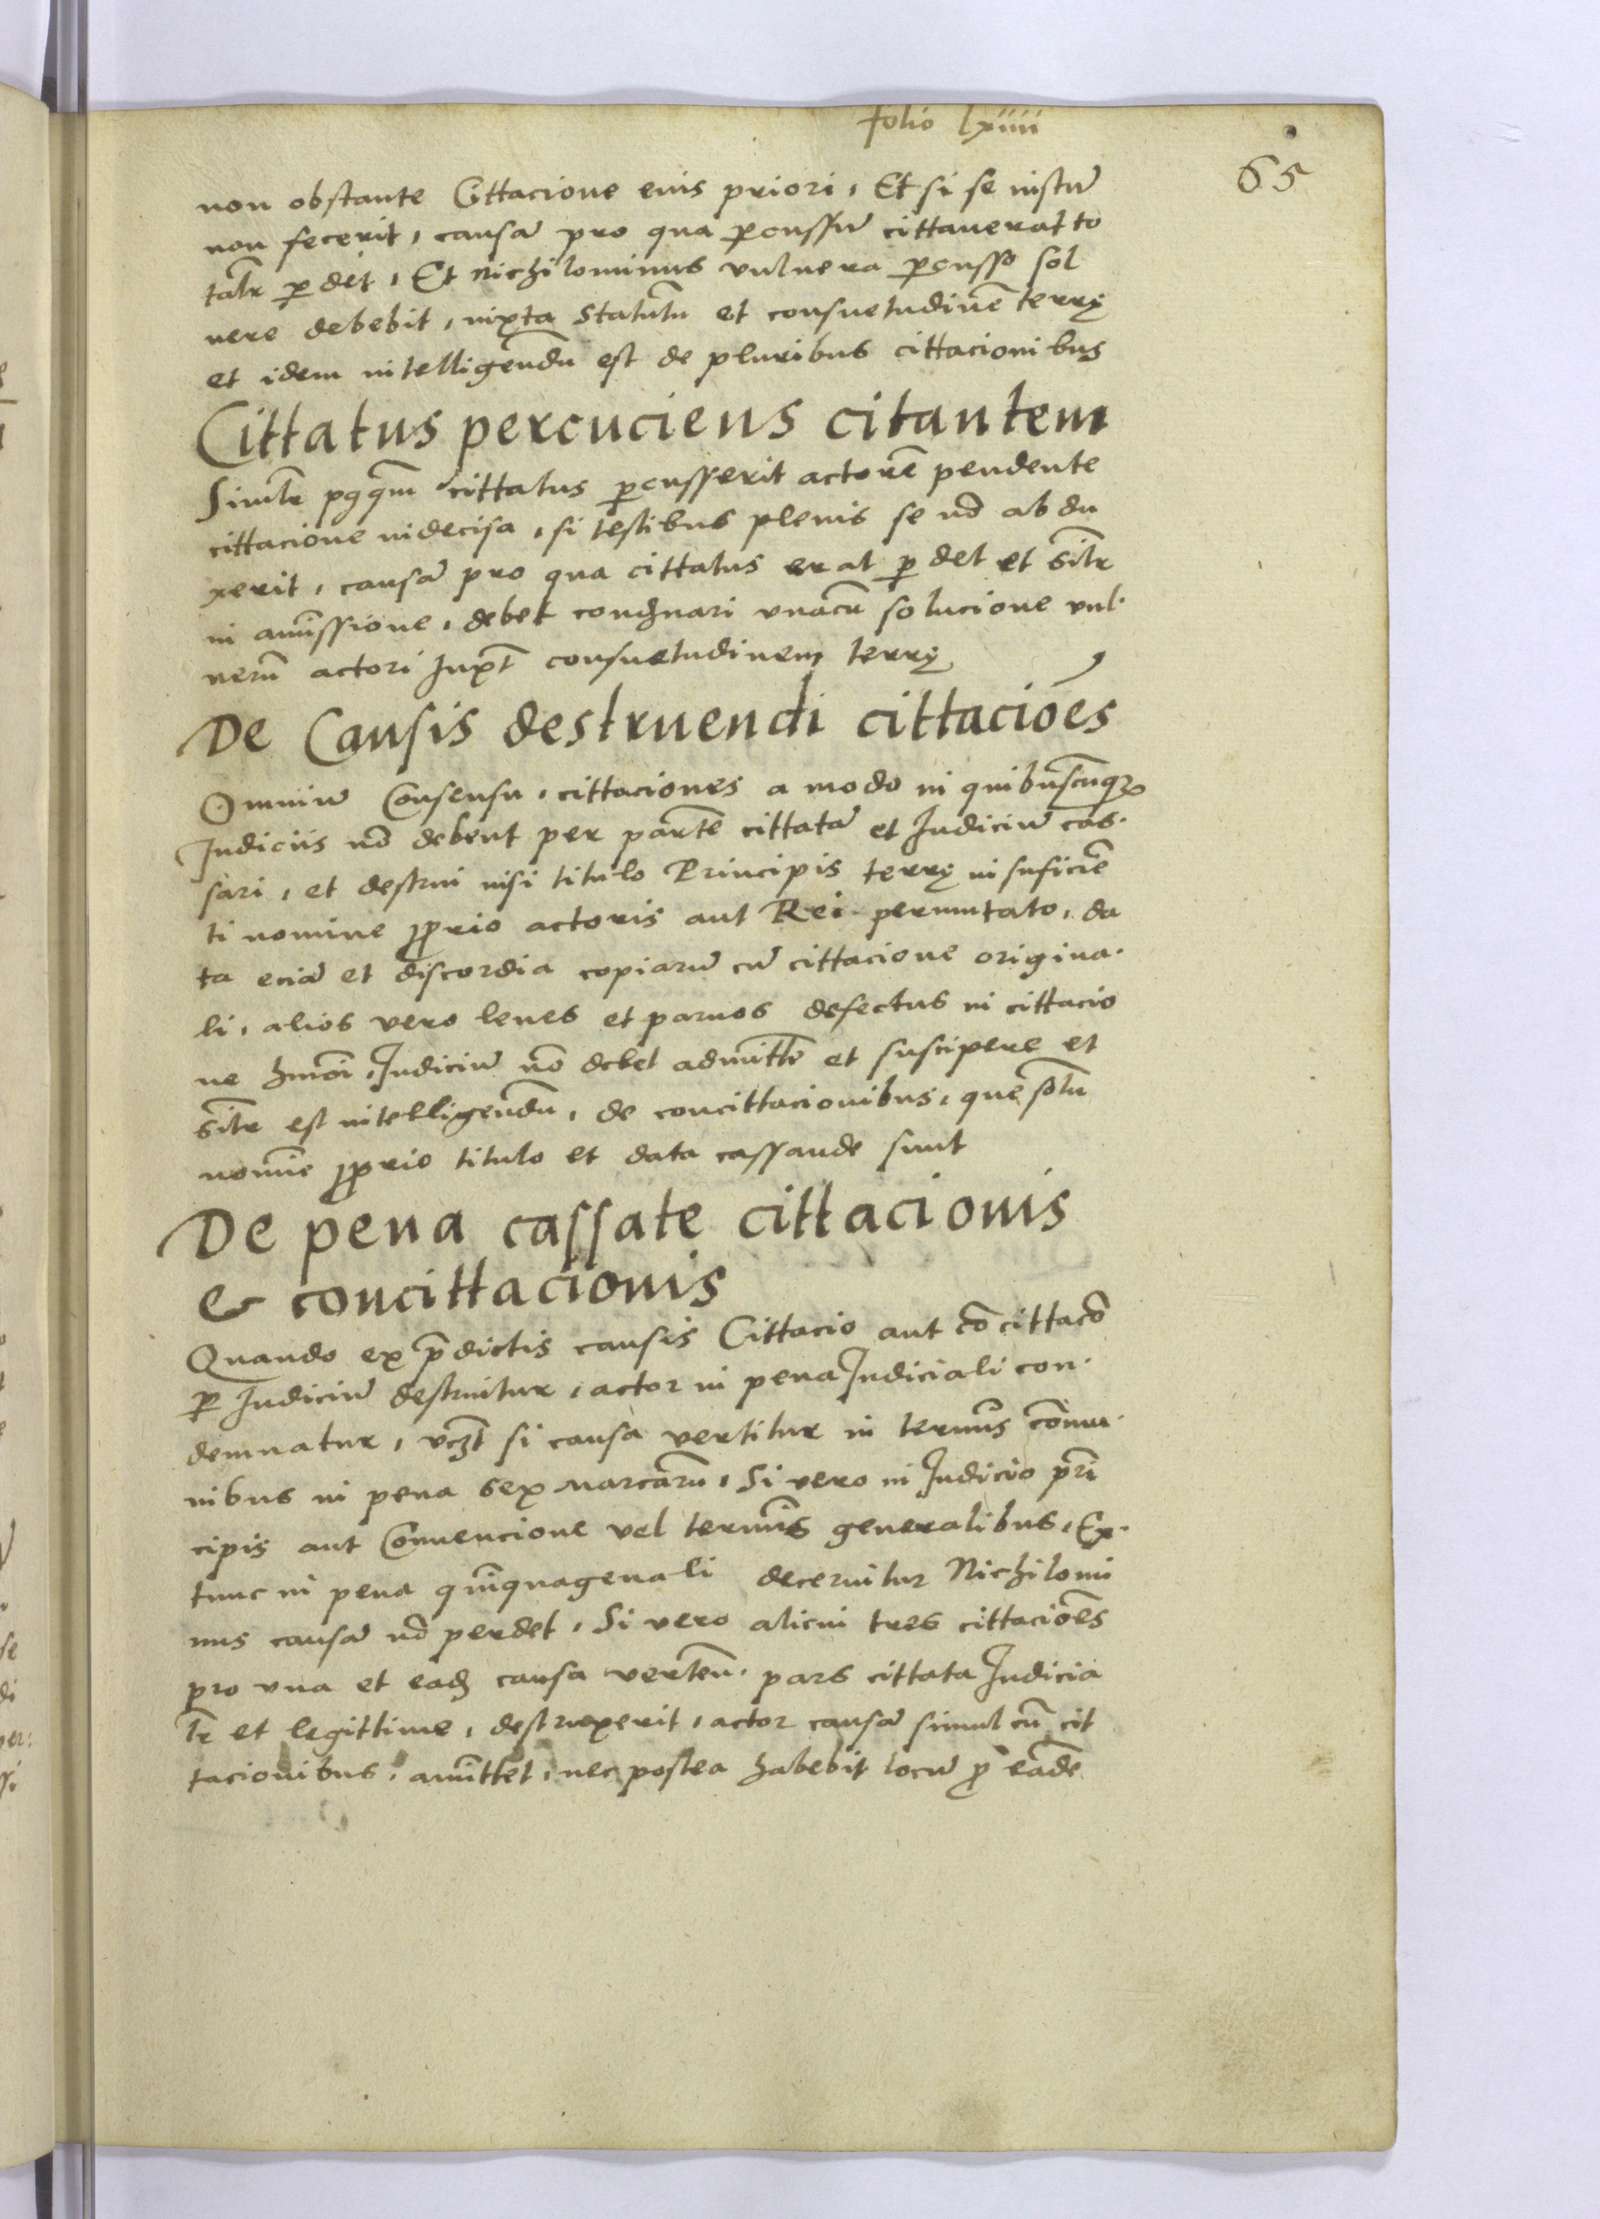 folio lxiiii
65
non obstante Cittacione eius priori, Et si se iustũ
non fecerit, causã pro qua ꝑcussũ cittauerat to
talr̃ ꝑdet, Et nichilominus vulnera ꝑcusso sol
uere debebit, iuxta Statutũ et consuetudinẽ terrę
et idem intelligendũ est de pluribus cittacionibus
Cittatus percuciens citantem
Similr̃ cittatus ꝑcusserit actorẽ pendente
cittacione indecisa, si testibus plenis se nõ abdu
xerit, causã pro qua cittatus erat ꝑdet et silr̃
in amissione, debet unacũ solucione vul
nerũ actori Iuxt consuetudinem terrę
De Causis destruendi cittacioẽs
Omniũ Consensu, cittaciones a modo in quibuscunq̃
Iudiciis nõ debent per partẽ cittatã et Iudiciũ cas
sari, et destrui nisi titulo Principis terrę insuficiẽ
ti nomine ꝓprio actoris aut Rei permutato, da
ta eciã et discordia copiarũ cũ cittacione origina
li, alios vero leues et paruos defectus in cittacio
ne hmõi, Iudiciũ nõ debet admitte et suscipere et
silr̃ est intelligendũ, de concittacionibus, que solũ
nomĩe ꝓprio titulo et data cassande sunt
De pena cassate cittacionis
& concittacionis
Quando ex p̃dictis causis Cittacio aut cõcittacõ
ꝑ Iudiciũ destruitur, actor in pena Iudiciali con
demnatur, vcz̃t si causa vertitur in termĩs cõmu
nibus in pena sex marcarũ, Si vero in Iudicio pri
cipis aut Conuencione vel termĩs generalibus, Ex
tunc in pena quĩquagenali decernitur Nichilomi
nus causã nõ perdet, Si vero alicui tres cittacioẽs
pro vna et eadȝ causa verteñ. pars cittata Iudicia
lr̃ et legittime, destruxerit, actor causã simul cũ cit
tacionibus, amittet, nec postea habebit locũ ꝓ eadẽ